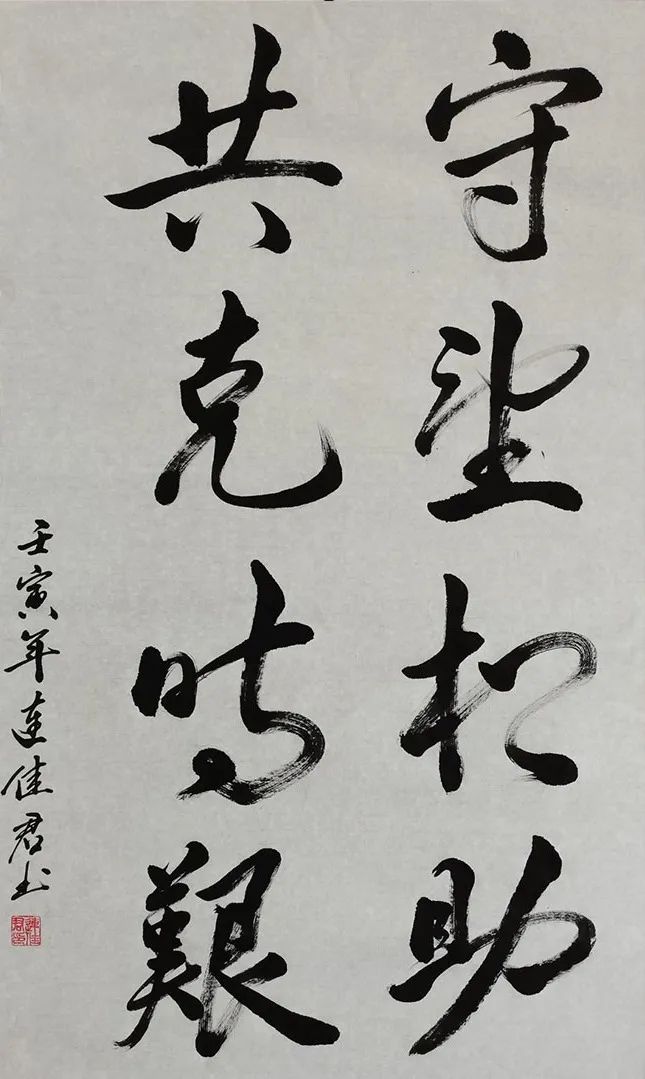 守望相助
共克時艱
壬寅年連佳君书